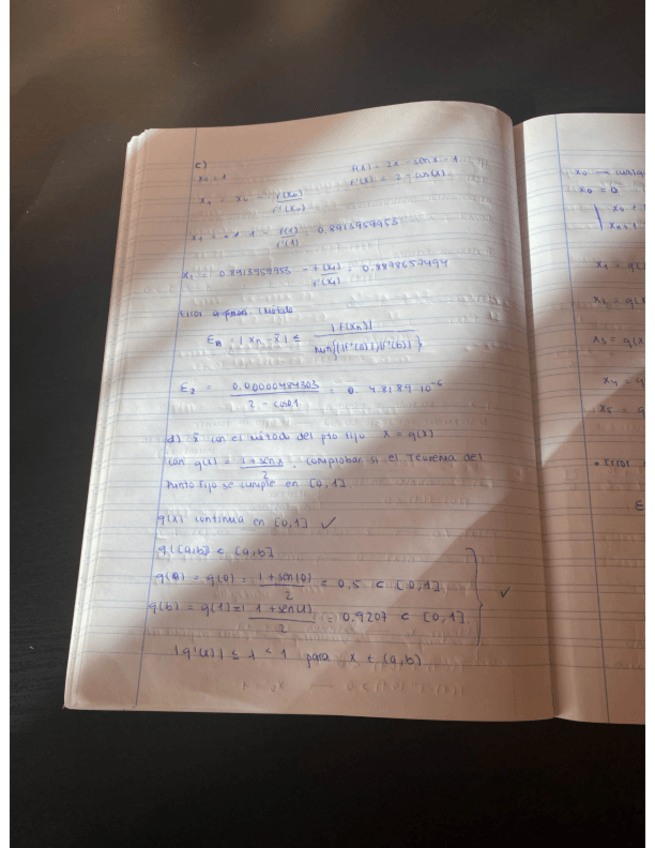 c)
x₀ = 1
f(x) = 2x - sen x - 1
f'(x) = 2 - cos(x)
x₁ = x₀ - f(x₀)/f'(x₀)
x₁ = 1 - f(1)/f'(1) = 0.8913959953
x₂ = 0.8913959953 - f(x₁)/f'(x₁) =
Error a método
|xₙ - x̄| ≤ |f(xₙ)| / min{|f'(a)|,|f'(b)|}
E₂ = / 2 - cos 0.1 = 10⁻⁶
d) x̄ con el método del pto fijo x = g(x)
con g(x) = (1 + sen x)/2, comprobar si el Teorema del
Punto fijo se cumple en [0,1]
g(x) continua en [0,1] ✓
g([a,b]) ⊂ [a,b]
g(a) = g(0) = (1 + sen(0))/2 = 0.5 ⊂ [0,1]
g(b) = g(1) = (1 + sen(1))/2 = 0.9207 ⊂ [0,1] ✓
|g'(x)| ≤ λ < 1 para x ∈ (a,b)
x₀ →
x₀ = 0
x₀ +
xₙ₊₁
x₁ = g(
x₂ = g(
x₃ = g(x
x₄ = g
x₅ = g
• Error
E